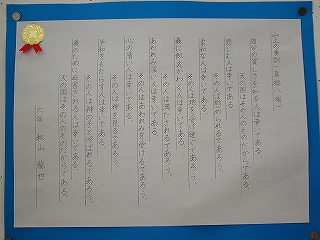 山上の垂訓（真福八端）
自分の貧しさを知る人は幸いである。
天の国はその人のものだからである。
悲しむ人は幸いである。
その人は慰められるであろう。
柔和な人は幸いである。
その人は地を受け継ぐであろう。
義に飢えかわく人は幸いである。
その人は満たされるであろう。
あわれみ深い人は幸いである。
その人はあわれみを受けるであろう。
心の清い人は幸いである。
その人は神を見るであろう。
平和をもたらす人は幸いである。
その人は神の子と呼ばれるであろう。
義のために迫害される人は幸いである。
天の国はその人のものだからである。
六年 秋山 龍世